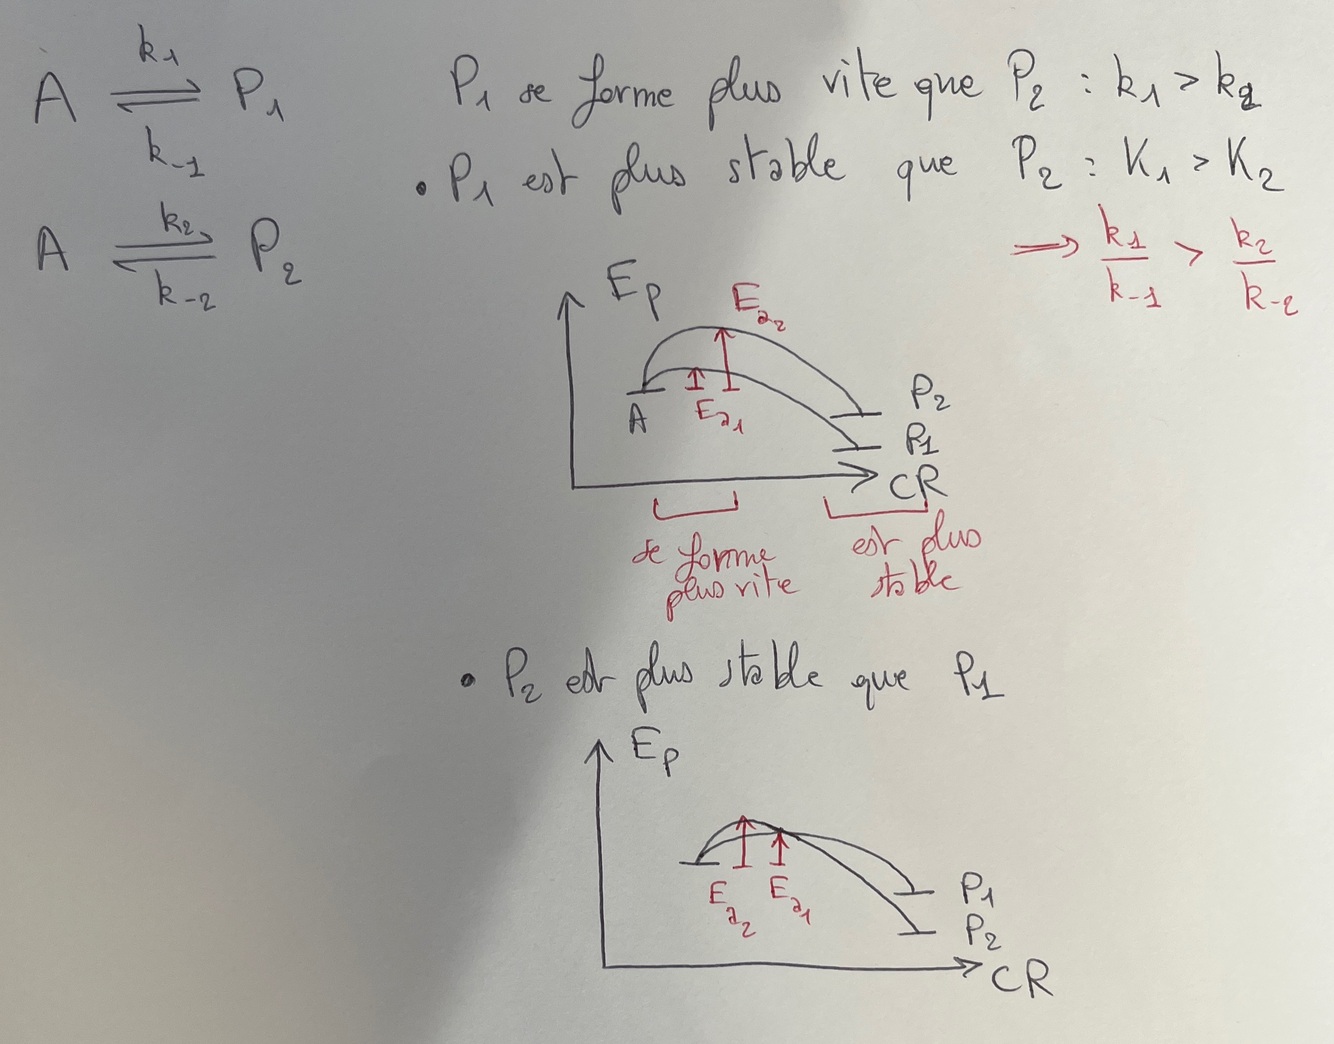 A ⇌ P₁
k₁
k₋₁
A ⇌ P₂
k₂
k₋₂
P₁ se forme plus vite que P₂ : k₁ > k₂
• P₁ est plus stable que P₂ : K₁ > K₂
⇒ k₁/k₋₁ > k₂/k₋₂
Ep
Ea₂
A
Ea₁
P₂
P₁
CR
se forme
plus vite
est plus
stable
• P₂ est plus stable que P₁
Ep
Ea₂
Ea₁
P₁
P₂
CR